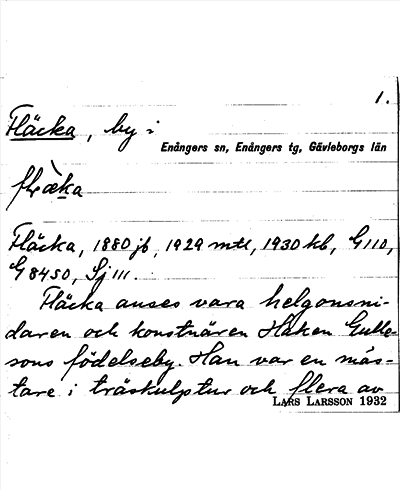 1.
Fläcka, by i
Enångers sn, Enångers tg, Gävleborgs län
flæ̀ka
Fläcka, 1880 jb, 1929 mtl, 1930 kb, G110,
G 8450, Sj 111.
Fläcka anses vara helgonsni-
daren och konstnären Håken Gulle-
sons födelseby. Han var en mäs-
tare i träskulptur och flera av
LARS LARSSON 1932